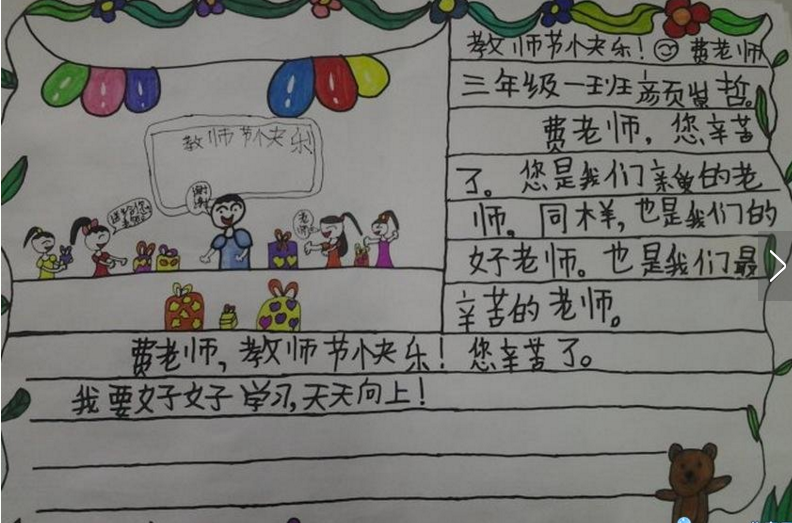 教师节快乐！ 费老师
三年级一班
费老师，您辛苦
了。您是我们亲爱的老
师，同样，也是我们的
好老师。也是我们最
辛苦的老师。
教师节快乐
谢谢
费老师，教师节快乐！您辛苦了。
我要好好学习，天天向上！